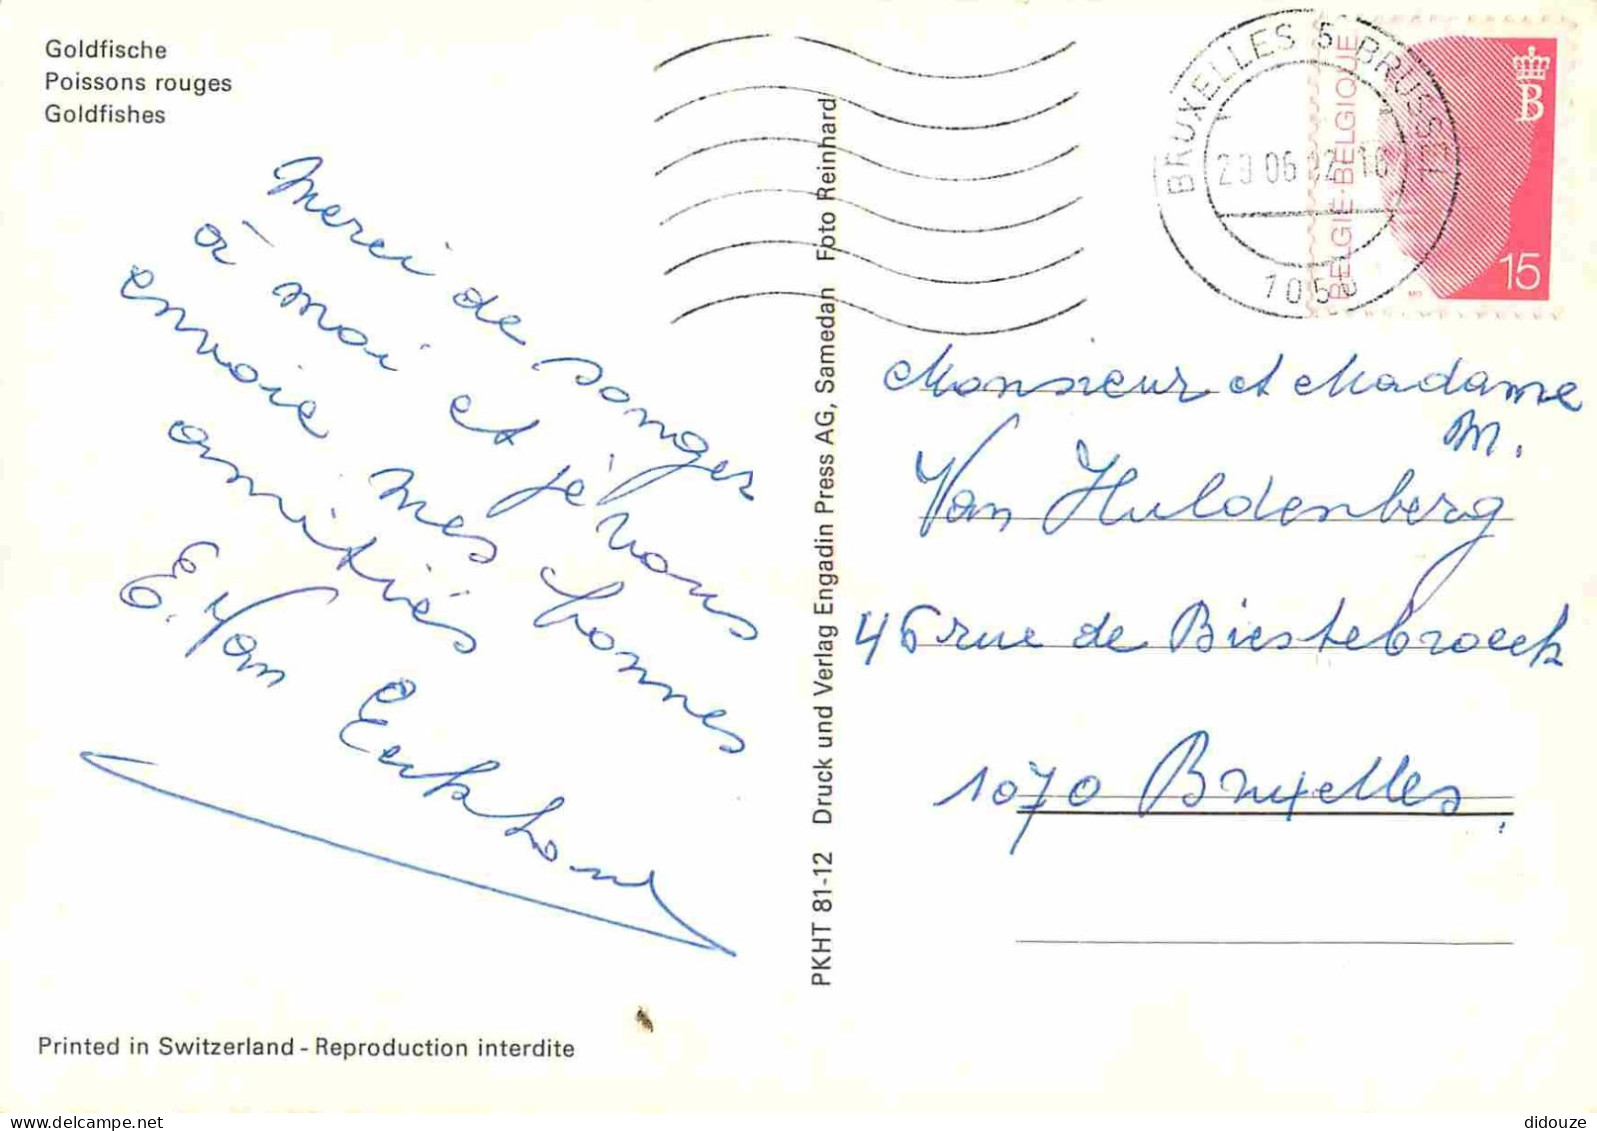 Goldfische
Poissons rouges
Goldfishes
Merci de songer
à moi et je vous
envoie mes bonnes
amitiés
E. Van Eeckhout
Printed in Switzerland - Reproduction interdite
PKHT 81-12 Druck und Verlag Engadin Press AG, Samedan Foto Reinhard
BRUXELLES 5 BRUSSEL
1050
BELGIË-BELGIQUE
B
15
Monsieur et Madame
M.
Van Huldenberg
46 rue de Biestebroeck
1070 Bruxelles.
didouze